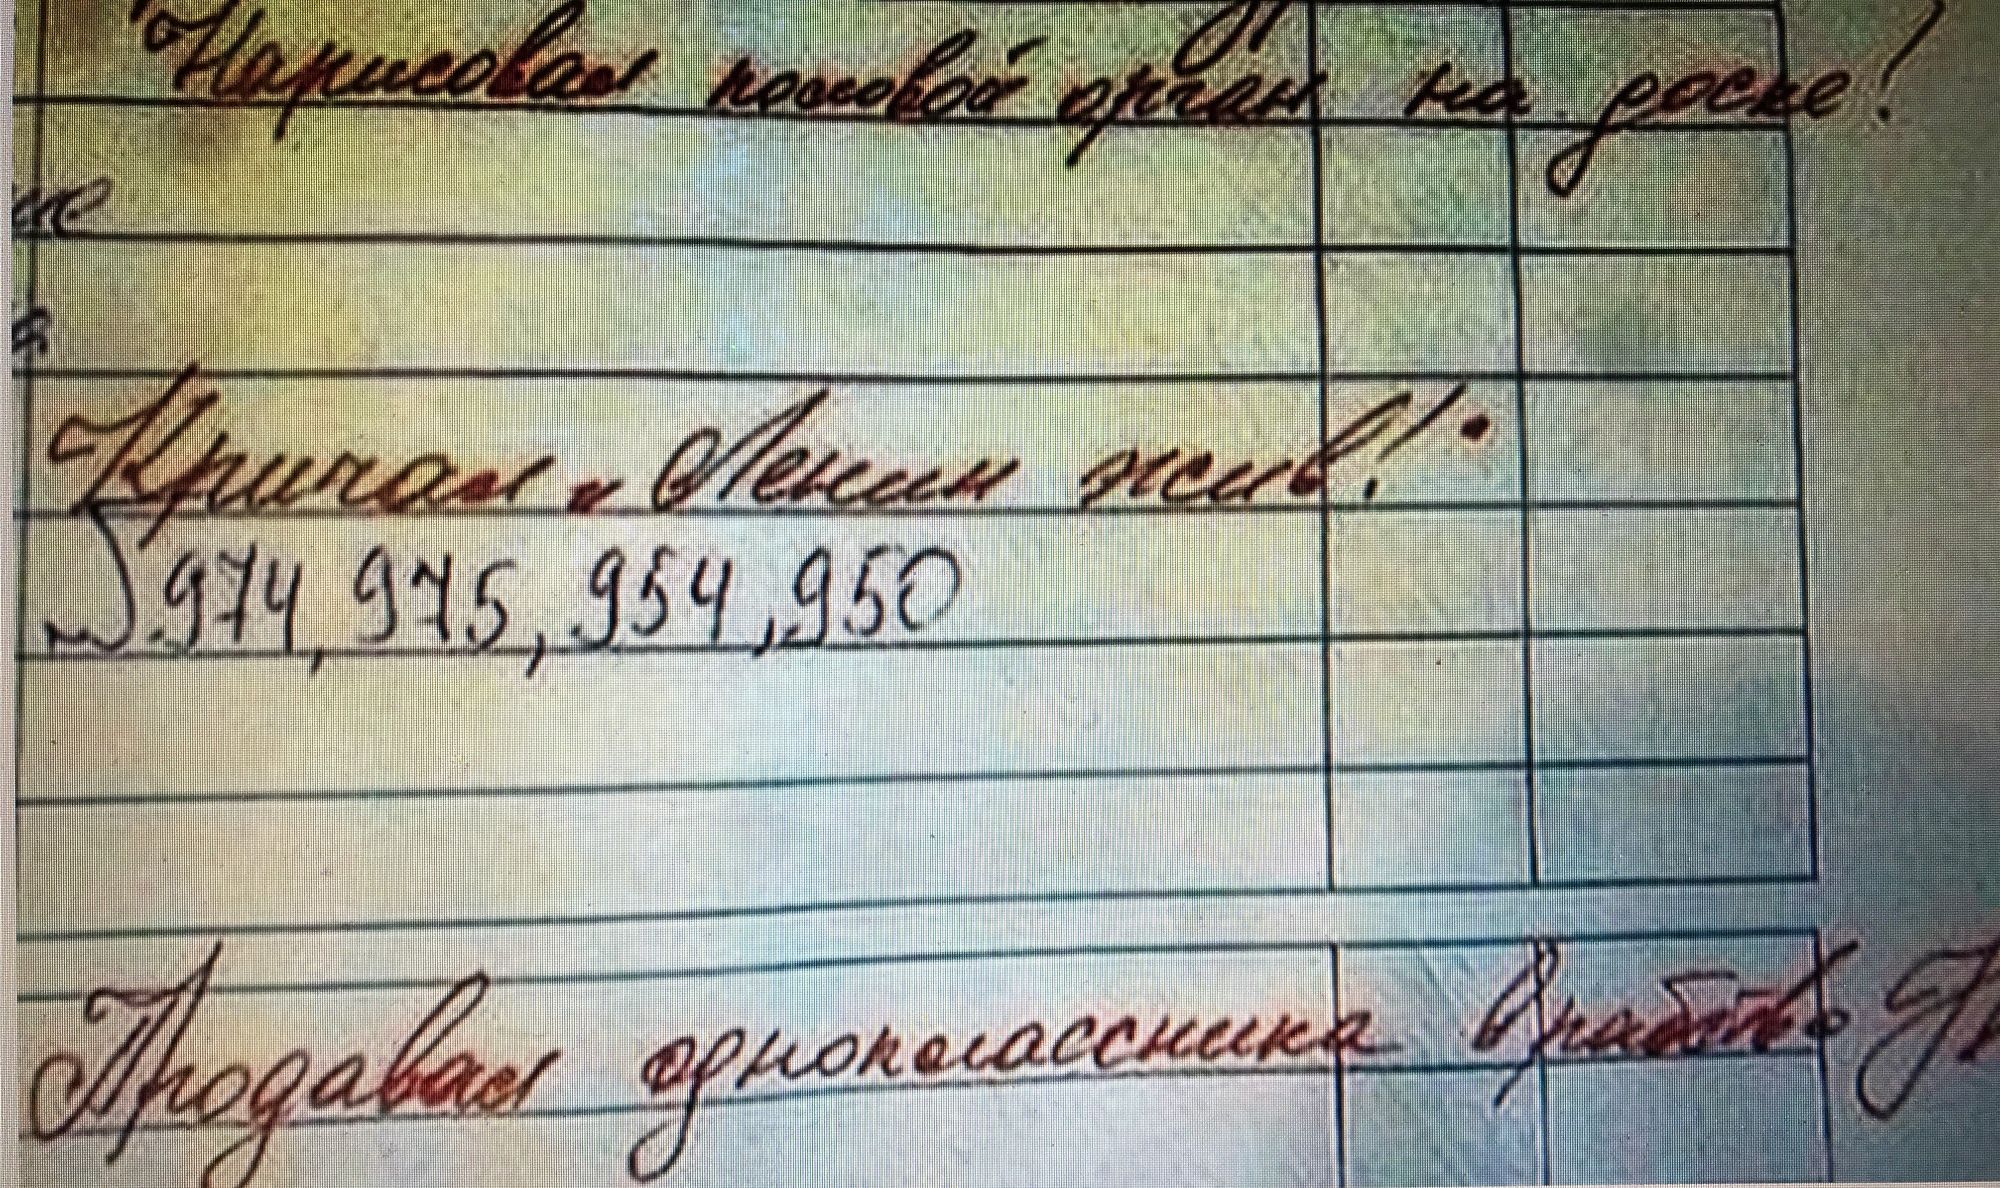 Нарисовал половой орган на доске!
Кричал „Ленин жив!"
974, 975, 954, 950
Продавал одноклассника в рабство